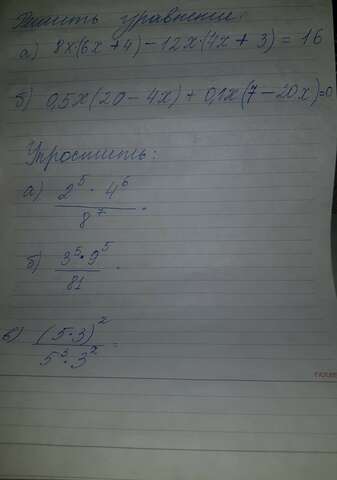 Решить уравнение:
а) 8x(6x+4) - 12x·(4x+3) = 16
б) 0,5x(20-4x) + 0,1x(7-20x)=0
Упростить:
а) 2⁵ · 4⁶
8⁷
б) 3⁵·9⁵
81
в) (5·3)²
5³·3² =